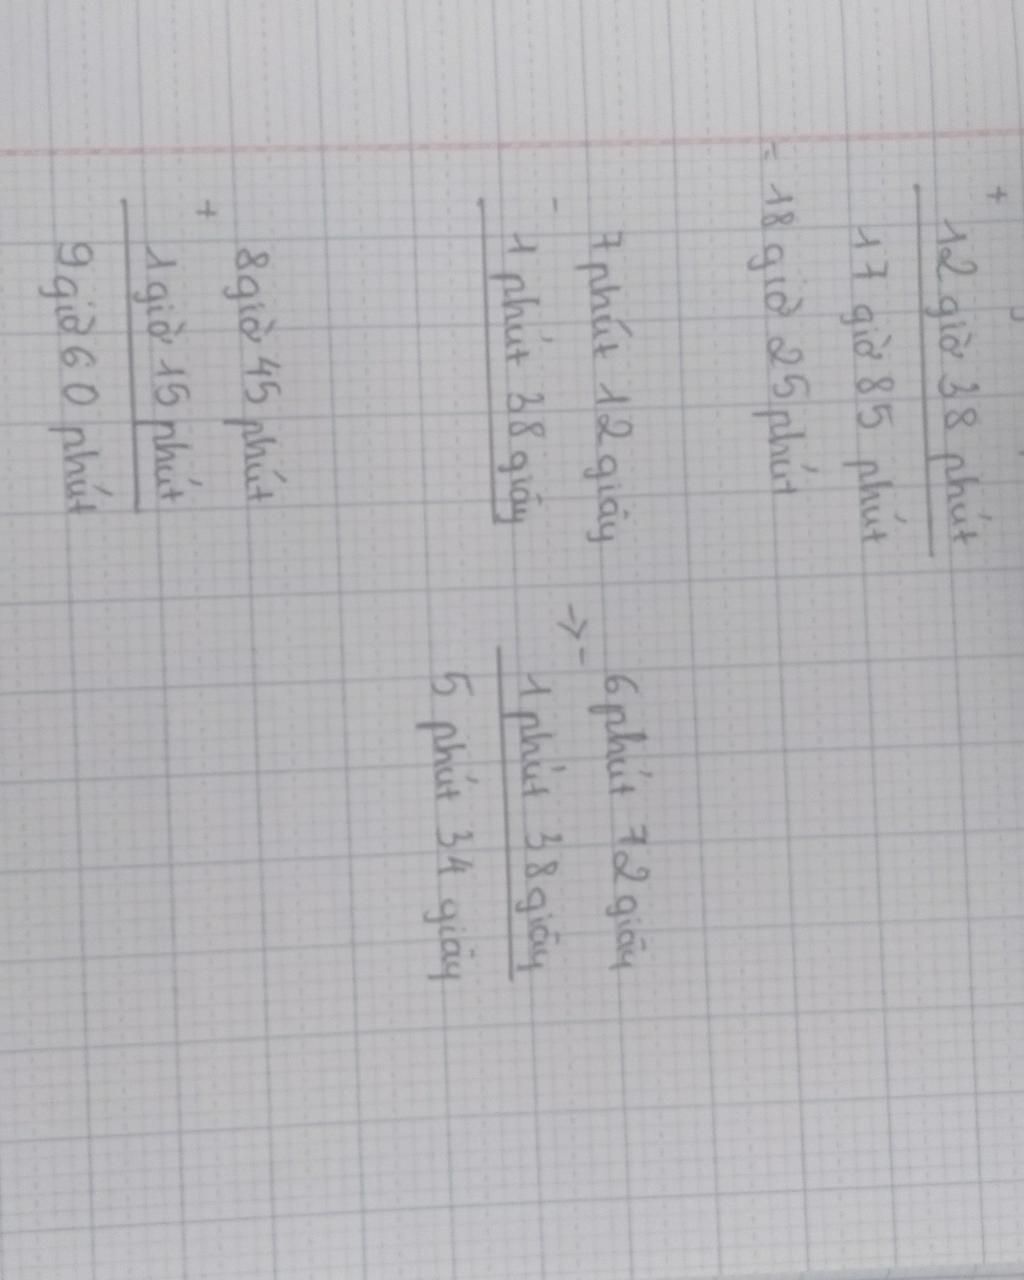 +
12 giờ 38 phút
17 giờ 85 phút
= 18 giờ 25 phút
7 phút 12 giây
-
1 phút 38 giây
→
6 phút 72 giây
-
1 phút 38 giây
5 phút 34 giây
8 giờ 45 phút
+
1 giờ 15 phút
9 giờ 60 phút